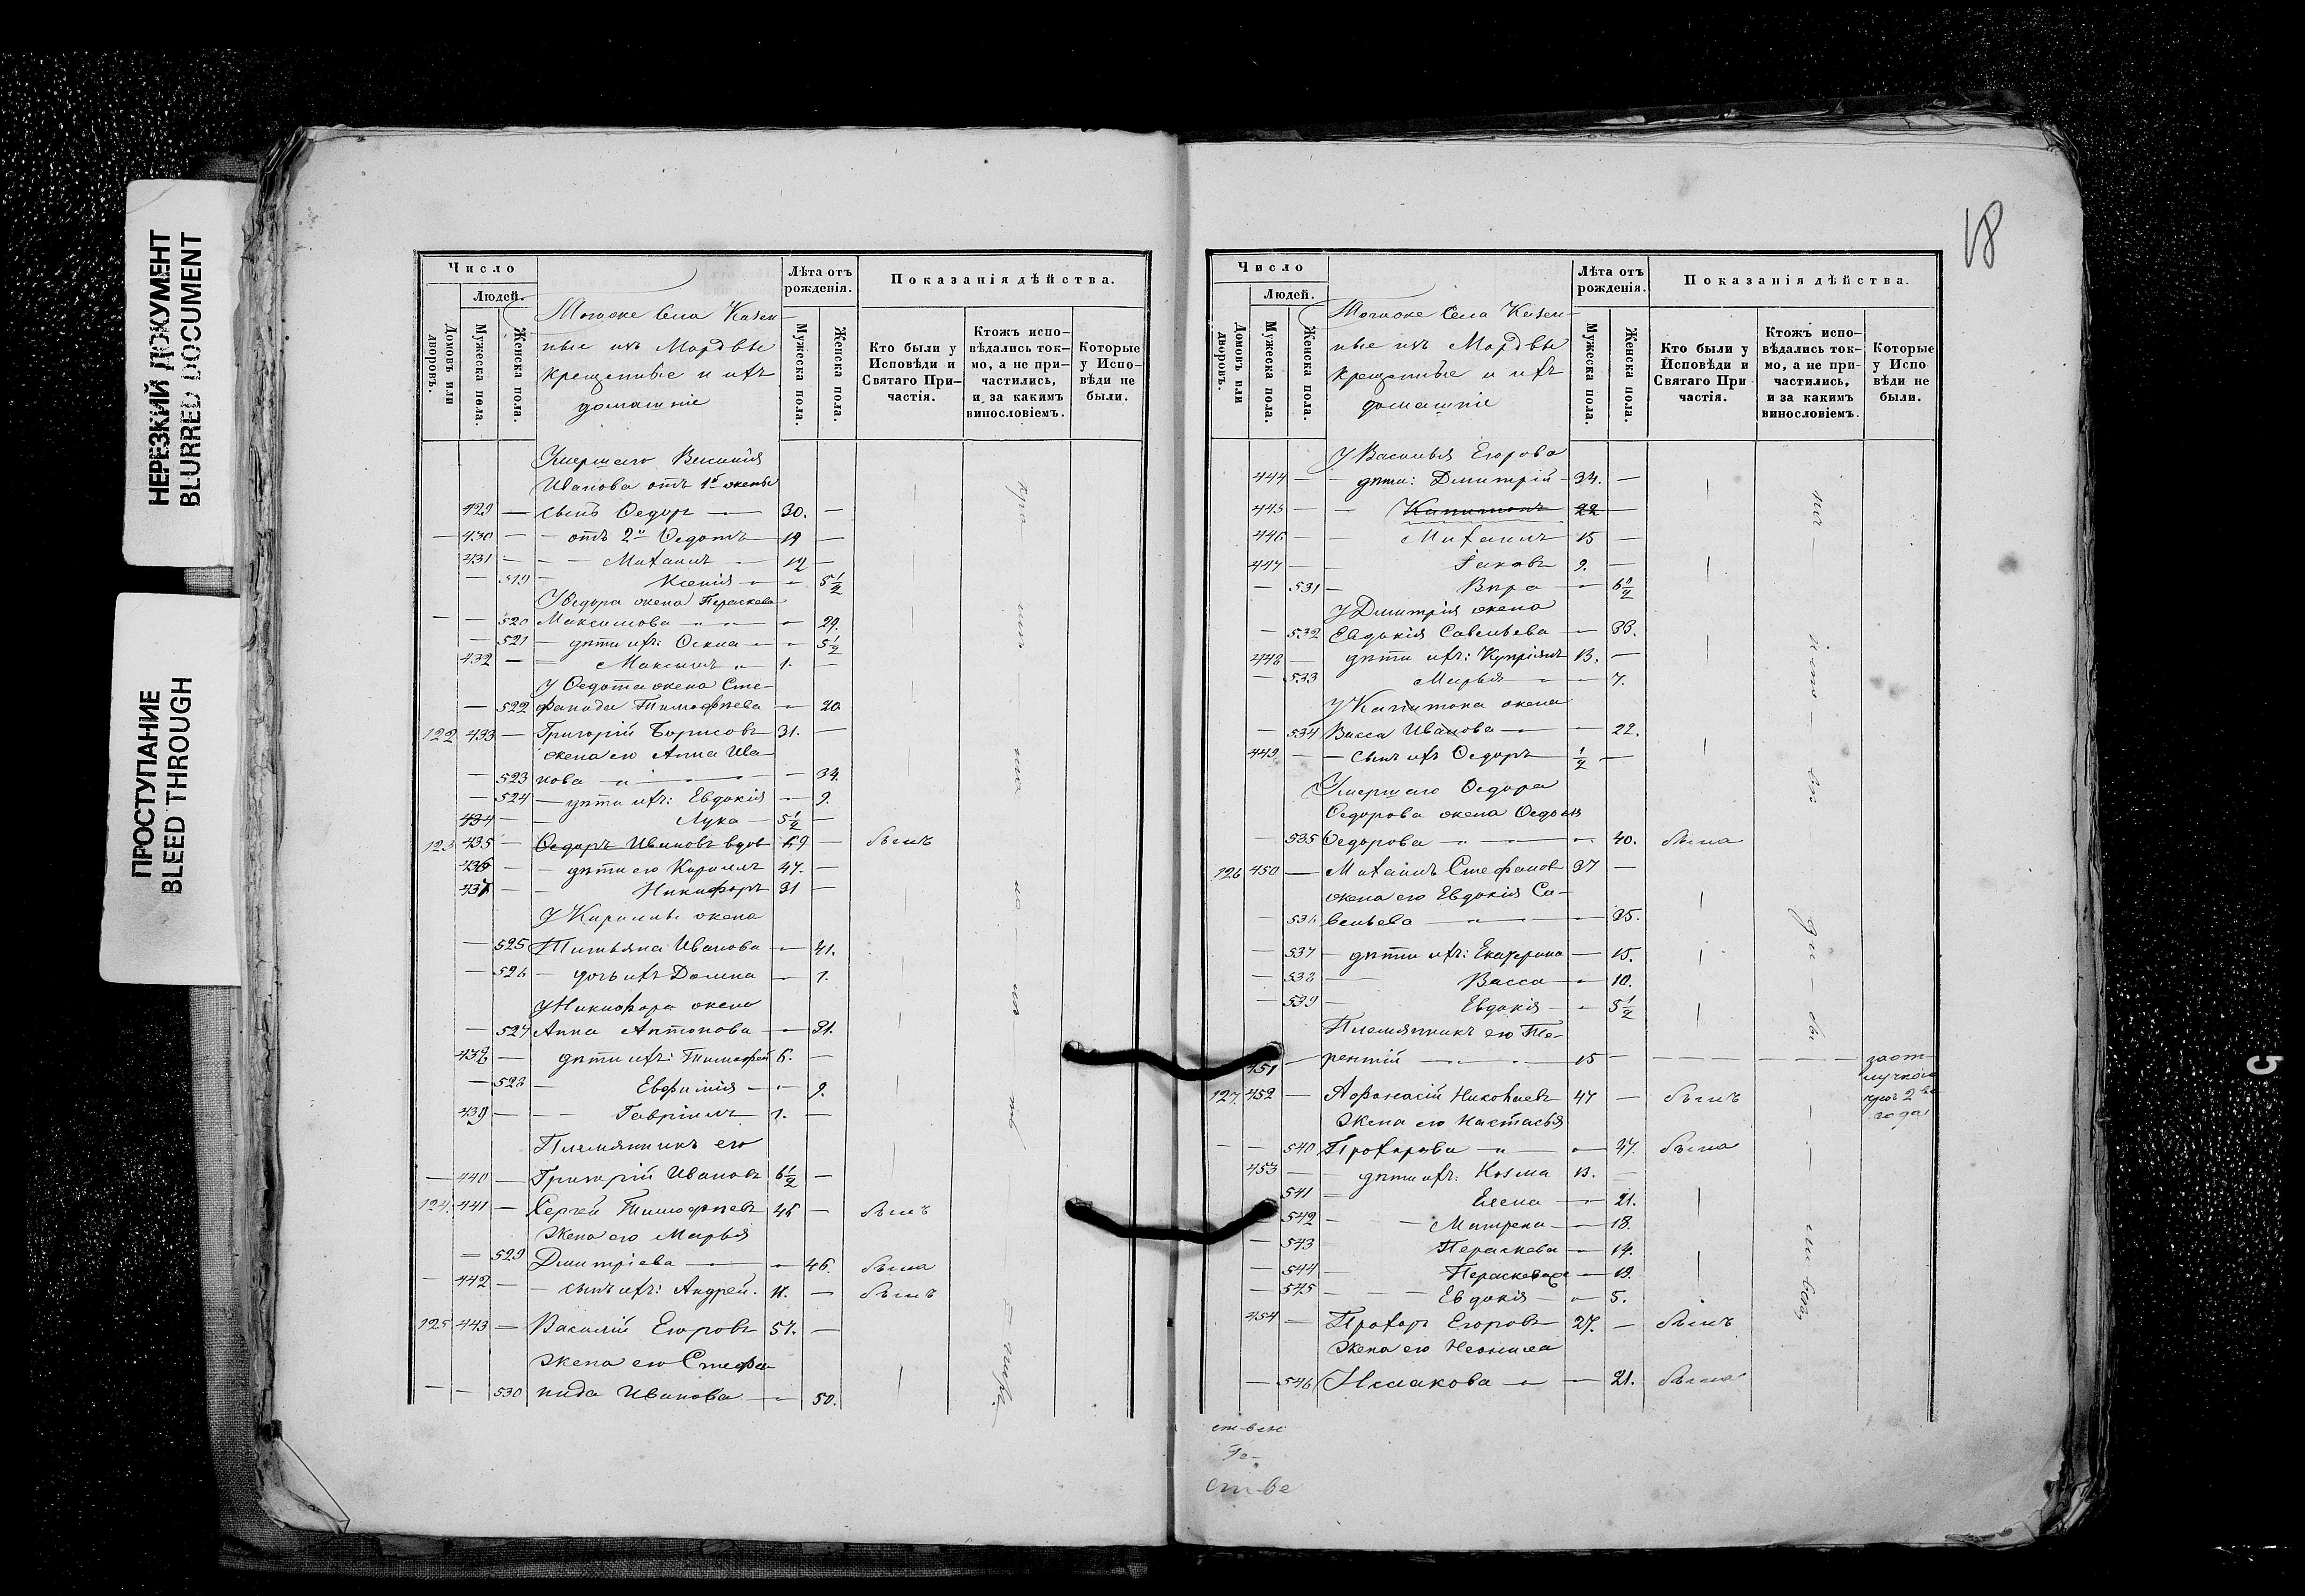 НЕРЕЗКИЙ ДОКУМЕНТ
BLURRED DOCUMENT
ПРОСТУПАНИЕ
BLEED THROUGH
Число
Людей.
Домовъ или дворовъ.
Мужеска пола.
Женска пола.
Тогоже Села Казен-
ные изъ Мордвы
крещенные и ихъ
домашніе
Лѣта отъ рожденія.
Мужеска пола.
Женска пола.
Показанія дѣйства.
Кто были у Исповѣди и Святаго При-частія.
Ктожъ испо-вѣдались ток-мо, а не при-частились, и за какимъ винословіемъ.
Которые у Испо-вѣди не были.
Умершаго Василія
Иванова отъ 1й жены
429 — сынъ Ѳедоръ — 30. —
— 430 — отъ 2й Ѳедотъ 19 —
431 — Михаилъ — 12 —
— 519 — Ксенія — 5 1/2
У Ѳедора жена Параскева
— — 520 Максимова — 29.
— 521 — дѣти ихъ: — 5 1/2
432 — Максимъ 1. —
У Ѳедота жена Сте-
— 522 фанида Тимофѣева — 20
122 433 — Григорій Борисовъ 31. —
жена его Анна Ива-
— 523 нова — 34.
— 524 — дѣти ихъ: Евдокія — 9.
434 — Лука — 5 1/2 —
123 435 — Ѳедоръ Ивановъ вдов 69 — былъ
436 — дѣти его Кирилъ 47. —
437 — Никифоръ 31 —
У Кирилы жена
— 525 Татьяна Иванова — 41.
— 526 — дочь ихъ Домна — 1.
У Никифора жена
— 527 Анна Антонова — 31.
438 — дѣти ихъ: Тимофей 6. —
— 528 — Евфимія — 9.
439 — Гавріилъ 1. —
Племянникъ его
— 440 — Григорій Ивановъ 6 1/2 —
124. 441 — Сергей Тимофѣевъ 45 — былъ
Жена его Марья
— 529 Дмитріева — 46. была
442 — сынъ ихъ: Андрей. — былъ
125 443 — Василій Егоровъ 57. —
Жена его Стефа-
— — 530 нида Иванова — 50.
18
Число
Людей.
Домовъ или дворовъ.
Мужеска пола.
Женска пола.
Тогоже Села Казен-
ные изъ Мордвы
крещенные и ихъ
домашніе
Лѣта отъ рожденія.
Мужеска пола.
Женска пола.
Показанія дѣйства.
Кто были у Исповѣди и Святаго При частія.
Ктожъ испо-вѣдались ток-мо, а не при-частились, и за какимъ винословіемъ.
Которые у Испо вѣди не были.
У Василья Егорова
444 — дѣти: Дмитрій 34. —
445 — Капитонъ 22 —
446 — Михаилъ 15 —
447 — Іаковъ 9. —
— 531 — Вѣра — 6 1/2
У Дмитрія жена
— 532 Евдокія Савельева — 33.
448 — дѣти ихъ: Купріянъ 13. —
— 533 Марья — 7.
У Капитона жена
— 534 Васса Иванова — 22.
449 — сынъ ихъ Ѳедоръ 1/2 —
Умершаго Ѳедора
Ѳедорова жена Ѳедосья
— 535 Ѳедорова — 40. была
126 450 — Михаилъ Стефанов 37 —
жена его Евдокія Са-
— 536 вельева — 35.
— 537 — дѣти ихъ: Екатерина — 15.
— 538 — Васса — 10.
— 539 — Евдокія — 5 1/2
Племянникъ его Те-
451 — рентій — 15 —
127. 452 — Аѳонасій Николаевъ 47 — былъ
Жена его Настасья
— 540 Прохорова — 47. была
453 — дѣти ихъ: Козма 13. —
541 — Елена — 21.
— 542 — Матрена — 18.
— 543 Параскева — 14.
— 544 — Параскева — 13.
— 545 — Евдокія — 5.
454 — Прохоръ Егоровъ 27. — былъ
Жена его
— 546 — 21. была
5